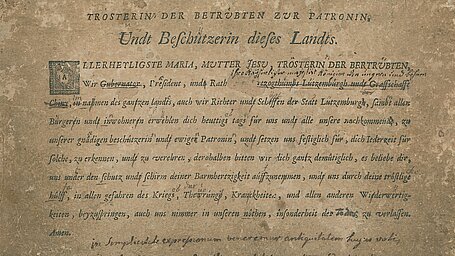 TRÖSTERIN DER BETRÜBTEN ZUR PATRONIN,
Undt Beschützerin dieses Landts.
ALLERHEYLIGSTE MARIA, MUTTER JESU, TRÖSTERIN DER BERTRÜBTEN,
Wir Gubernator, Præsident, undt Rath
Hertzogthumbs Lutzemburgh undt Graffschafft
Chiny, in nahmen des gantzen Landts, auch wir Richter und Schöffen der Statt Lutzemburgh, sambt allen
Bürgeren und inwohneren erwöhlen dich heuttigs tags für uns und alle unsere nachkommende, zu
unser gnädigen beschützerin undt ewigen Patronin, undt setzen uns festiglich für, dich Jederzeit für
solche, zu erkennen, undt zu verehren, derohalben bitten wir dich gantz demütiglich, es beliebe dir,
uns under den schutz undt schirm deiner Barmhertzigkeit auffzunemmen, undt uns durch deine tröstliche
hülff, in allen gefahren des Kriegs, Thewrungs, Kranckheiten, und allen anderen Wiederwertig-
keiten, beyzuspringen, auch uns nimmer in unseren nöthen, insonderheit des Todts, zu verlassen.
Amen.
in simplicitate expressionum veneremur antiquitatem hujus voti,